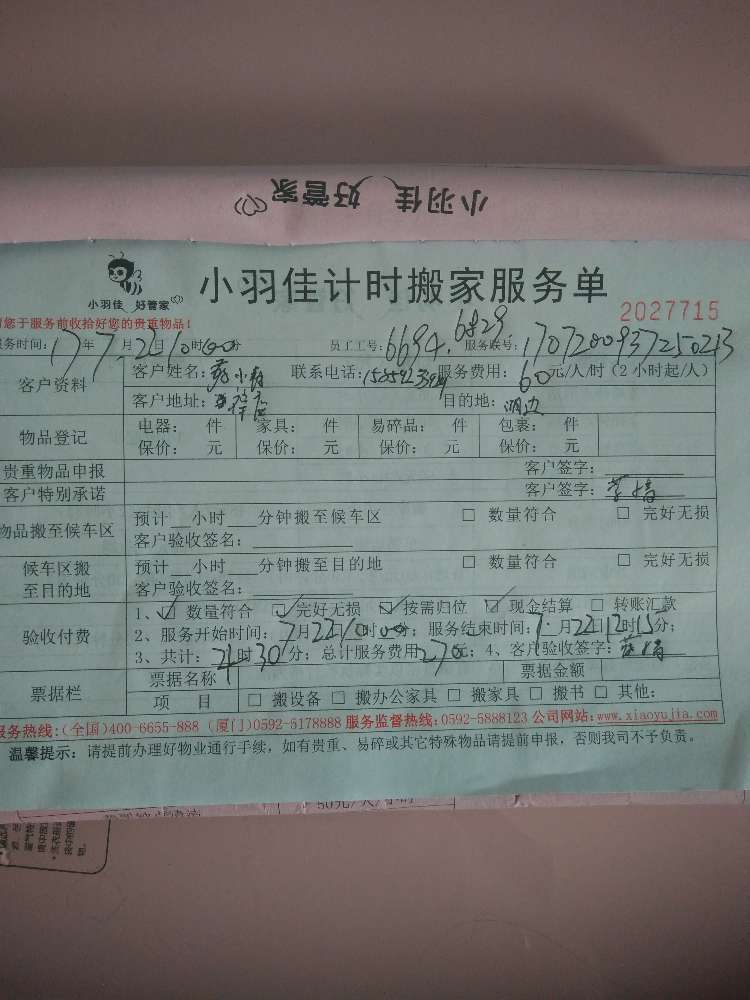 小羽佳 好管家
小羽佳 好管家
小羽佳计时搬家服务单
2027715
您于服务前收拾好您的贵重物品!
务时间: 17年 7月 22日 10时00分 员工工号: 6694. 6829 服务联号: 1707200937250213
客户资料
客户姓名: 联系电话: 服务费用: 60元/人/时 (2小时起/人)
客户地址: 目的地: 湖边
物品登记
电器: 件 家具: 件 易碎品: 件 包裹: 件
保价: 元 保价: 元 保价: 元 保价: 元
贵重物品申报 客户签字:
客户特别承诺 客户签字:
物品搬至候车区
预计 小时 分钟搬至候车区 □ 数量符合 □ 完好无损
客户验收签名:
候车区搬至目的地
预计 小时 分钟搬至目的地 □ 数量符合 □ 完好无损
客户验收签名:
验收付费
1、☑ 数量符合 ☑ 完好无损 ☑ 按需归位 ☑ 现金结算 □ 转账汇款
2、服务开始时间: 7月22日10时00分; 服务结束时间: 7月22日12时15分;
3、共计: 2时30分; 总计服务费用270元; 4、客户验收签字:
票据栏
票据名称 票据金额
项 目 □ 搬设备 □ 搬办公家具 □ 搬家具 □ 搬书 □ 其他:
服务热线:(全国)400-6655-888 (厦门)0592-6178888 服务监督热线:0592-5888123 公司网站:www.xiaoyujia.com
温馨提示: 请提前办理好物业通行手续,如有贵重、易碎或其它特殊物品请提前申报,否则我司不予负责。
50元/人/小时